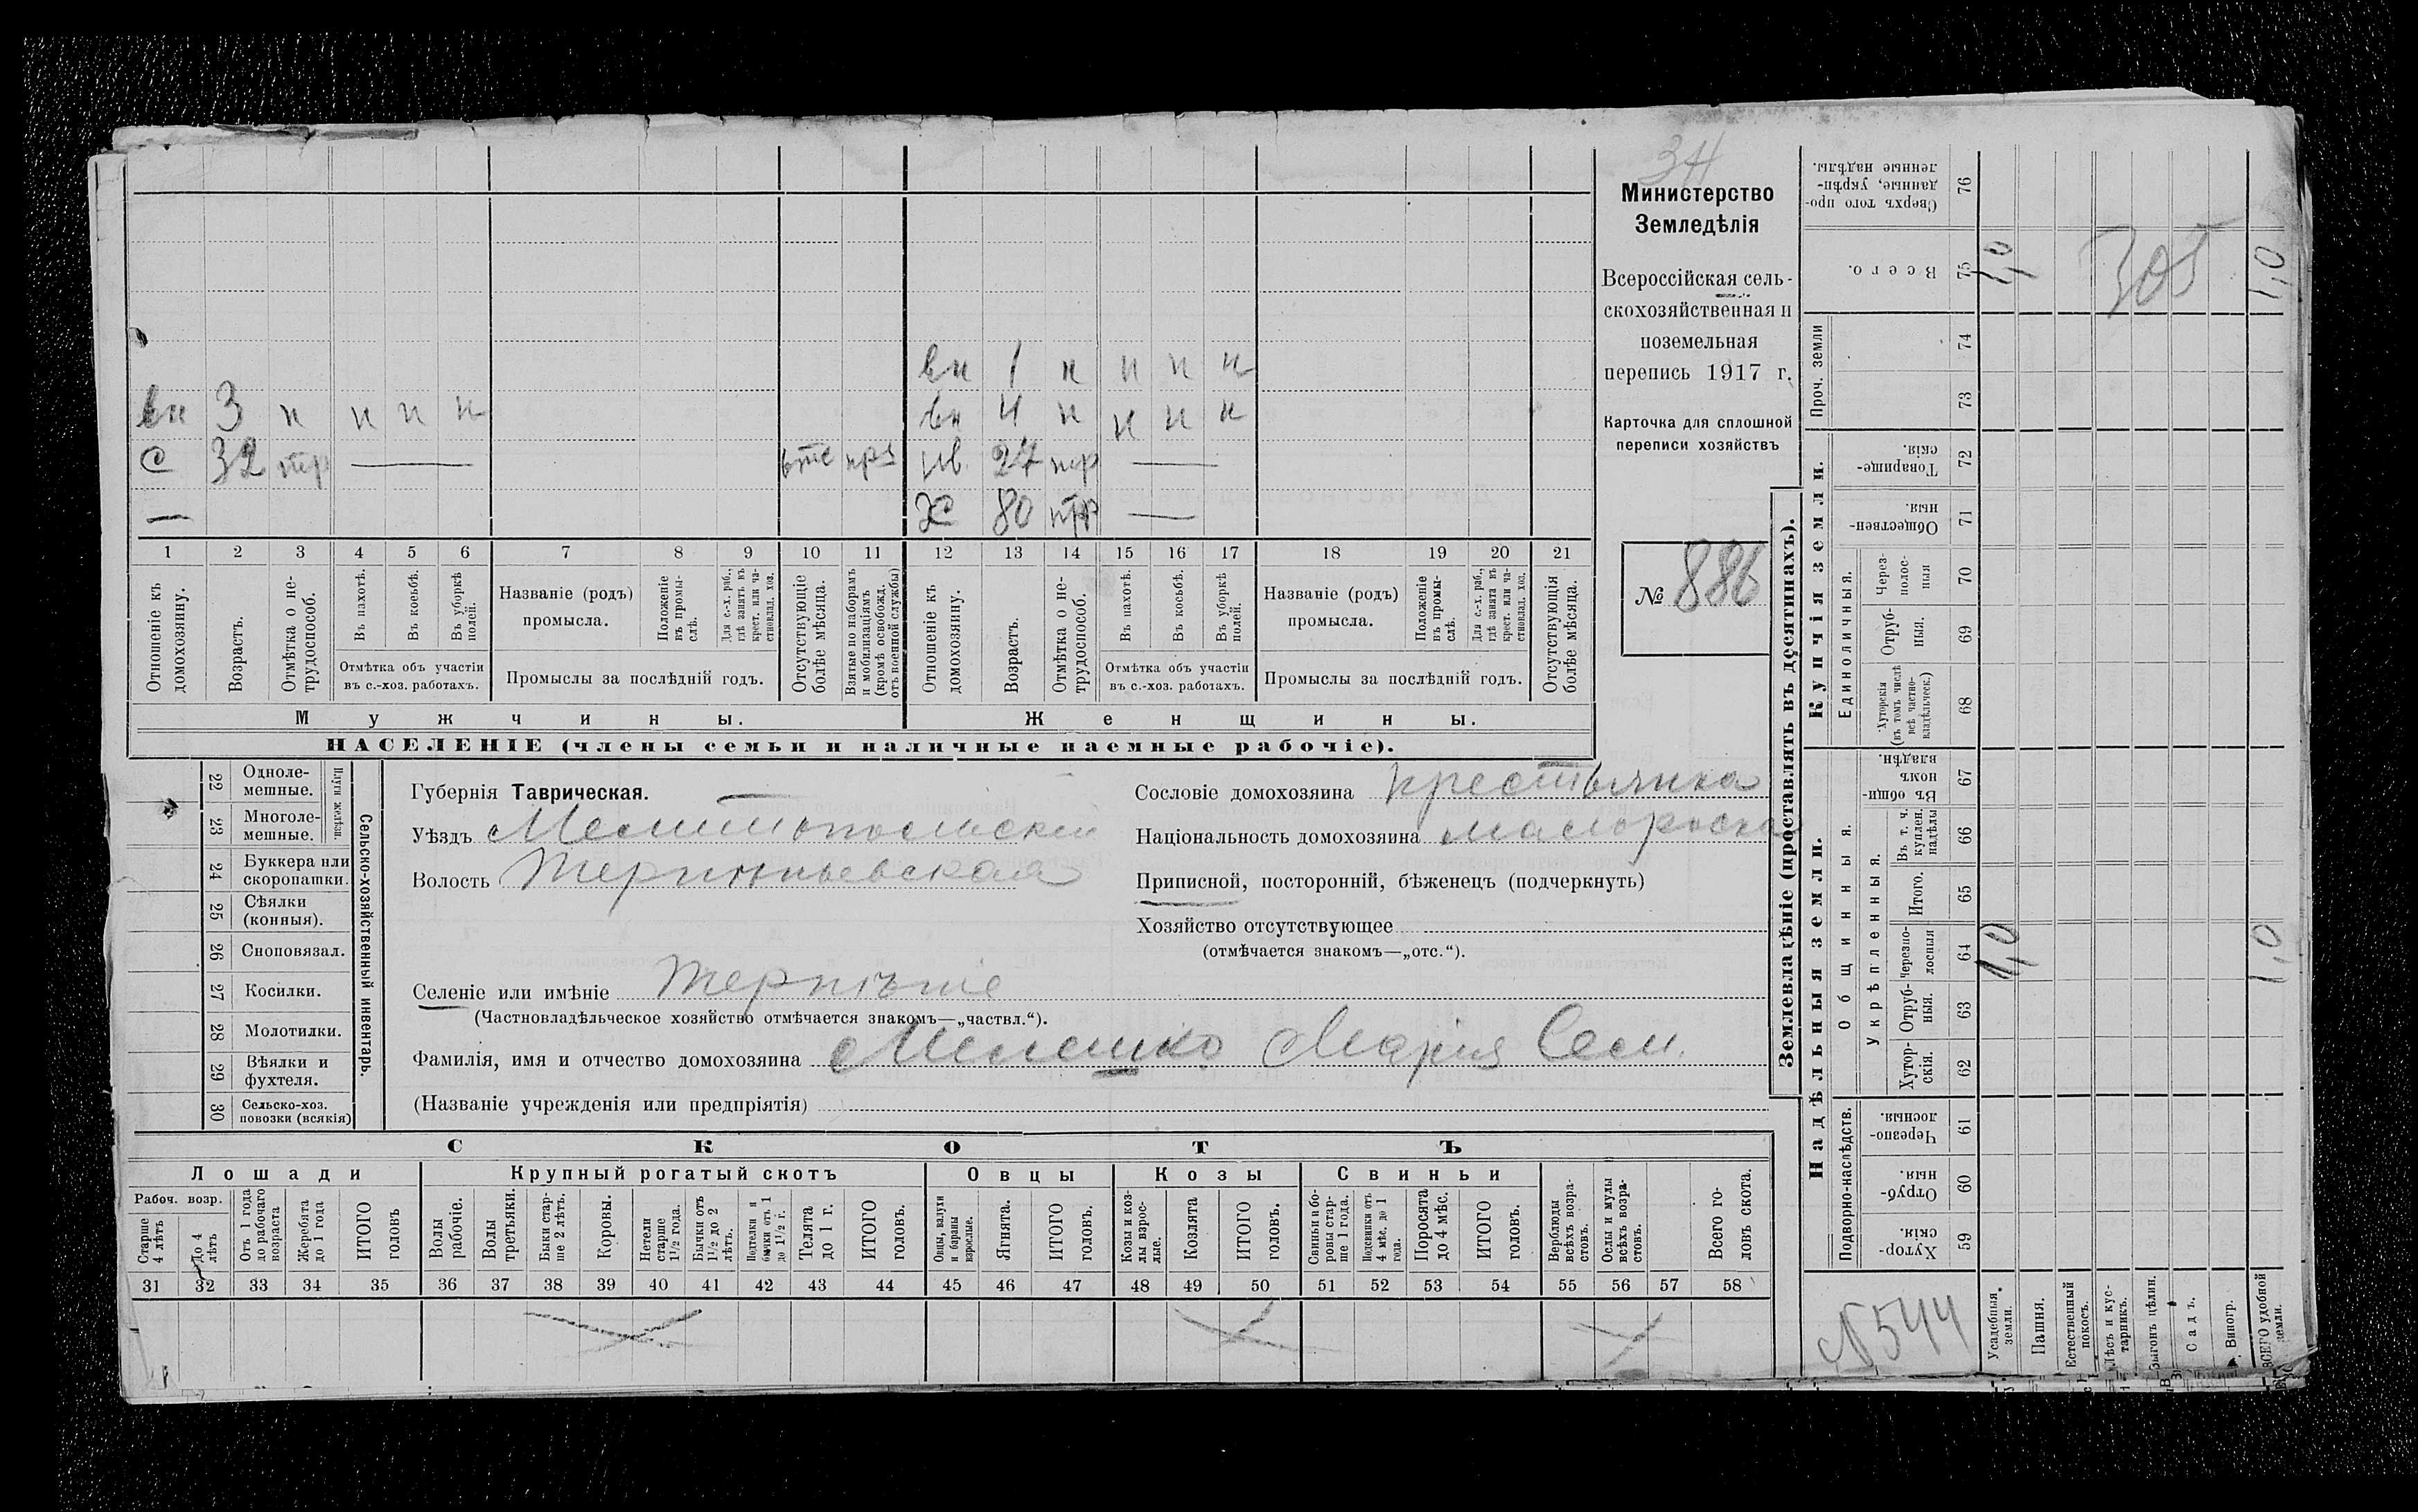 34
Министерство
Земледѣлія
Всероссійская сель-
скохозяйственная и
поземельная
перепись 1917 г.
Карточка для сплошной
переписи хозяйствъ
№ 886
вн 1 н н н н
вн 3 н н н н
вн 4 н н н н
с 32 тр — втс
27 —
— 80 —
1 2 3 4 5 6 7 8 9 10 11 12 13 14 15 16 17 18 19 20 21
Отношеніе къ домохозяину.
Возрастъ.
Отмѣтка о не-трудоспособ.
Въ пахотѣ.
Въ косьбѣ.
Въ уборкѣ полей.
Отмѣтка объ участіи
въ с.-хоз. работахъ.
Названіе (родъ)
промысла.
Положеніе въ промы-слѣ.
Для с.-х. раб., гдѣ занятъ въ крест. или ча-стновлад. хоз.
Промыслы за послѣдній годъ.
Отсутствующіе болѣе мѣсяца.
Взятые по наборамъ и мобилизаціямъ (кромѣ освобожд. отъ военной службы)
Отношеніе къ домохозяину.
Возрастъ.
Отмѣтка о не-трудоспособ.
Въ пахотѣ.
Въ косьбѣ.
Въ уборкѣ полей.
Отмѣтка объ участіи
въ с.-хоз. работахъ.
Названіе (родъ)
промысла.
Положеніе въ промы-слѣ.
Для с.-х. раб., гдѣ занята въ крест. или ча-стновлад. хоз.
Промыслы за послѣдній годъ.
Отсутствующія болѣе мѣсяца.
Мужчины.
Женщины.
НАСЕЛЕНІЕ (члены семьи и наличные наемные рабочіе).
Сельско-хозяйственный инвентарь.
Плуги желѣзн.
22 Одноле-мешные.
23 Многоле-мешные.
24 Буккера или скоропашки.
25 Сѣялки (конныя).
26 Сноповязал.
27 Косилки.
28 Молотилки.
29 Вѣялки и фухтеля.
30 Сельско-хоз. повозки (всякія)
Губернія Таврическая.
Уѣздъ Мелитопольскій
Волость Терпѣньевская
Сословіе домохозяина крестьянка
Національность домохозяина малороска
Приписной, посторонній, бѣженецъ (подчеркнуть)
Хозяйство отсутствующее
(отмѣчается знакомъ—„отс.“).
Селеніе или имѣніе Терпѣніе
(Частновладѣльческое хозяйство отмѣчается знакомъ—„частвл.“).
Фамилія, имя и отчество домохозяина Мелешко Марія Сем.
(Названіе учрежденія или предпріятія)
СКОТЪ
Лошади
Крупный рогатый скотъ
Овцы
Козы
Свиньи
Рабоч. возр.
Старше 4 лѣтъ
До 4 лѣтъ
Отъ 1 года до рабочаго возраста
Жеребята до 1 года
ИТОГО головъ
Волы рабочіе.
Волы третьяки.
Быки стар-ше 2 лѣтъ.
Коровы.
Нетели старше 1½ года.
Бычки отъ 1½ до 2 лѣтъ.
Подтелки и бычки отъ 1 до 1½ г.
Телята до 1 г.
ИТОГО головъ.
Овцы, валухи и бараны взрослые.
Ягнята.
ИТОГО головъ.
Козы и коз-лы взрос-лые.
Козлята
ИТОГО головъ.
Свиньи и бо-ровы стар-ше 1 года.
Подсвинки отъ 4 мѣс. до 1 года.
Поросята до 4 мѣс.
ИТОГО головъ.
Верблюды всѣхъ возра-стовъ.
Ослы и мулы всѣхъ возра-стовъ.
Всего го-ловъ скота.
31 32 33 34 35 36 37 38 39 40 41 42 43 44 45 46 47 48 49 50 51 52 53 54 55 56 57 58
Землевладѣніе (проставлять въ десятинахъ).
Сверхъ того про-данные, укрѣп-ленные надѣлы. 76
Всего. 75 1,0 305 1,0
Проч. земли 74
73
Купчія земли.
Товарище-скія 72
Обществен-ныя. 71
Единоличныя.
Через-полос-ныя 70
Отруб-ныя. 69
Хуторскія (въ томъ числѣ всѣ частно-владѣльческ.) 68
Надѣльныя земли.
Общинныя.
Въ общи-номъ владѣн. 67
Укрѣпленныя.
Въ т. ч. куплен. надѣлы 66
Итого. 65
Черезпо-лосныя 64 1,0 1,0
Отруб-ныя. 63
Хутор-скія. 62
Подворно-наслѣдств.
Черезпо-лосныя. 61
Отруб-ныя. 60
Хутор-скія. 59
№ 544
Усадебныя земли.
Пашня.
Естественный покосъ.
Лѣсъ и кус-тарникъ.
Выгонъ цѣлин.
Садъ.
Виногр.
ВСЕГО удобной земли.